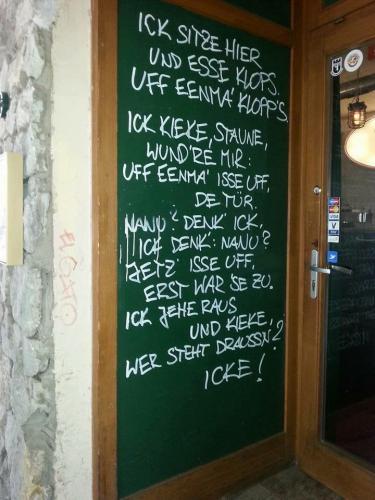 ICK SITZE HIER
UND ESSE KLOPS.
UFF EENMA' KLOPP'S.
ICK KIEKE, STAUNE,
WUND'RE MIR:
UFF EENMA' ISSE UFF,
DE TÜR.
NANU? DENK' ICK,
ICK DENK': NANU?
JETZ' ISSE UFF,
ERST WAR SE ZU.
ICK JEHE RAUS
UND KIEKE,
WER STEHT DRAUSSN?
ICKE!